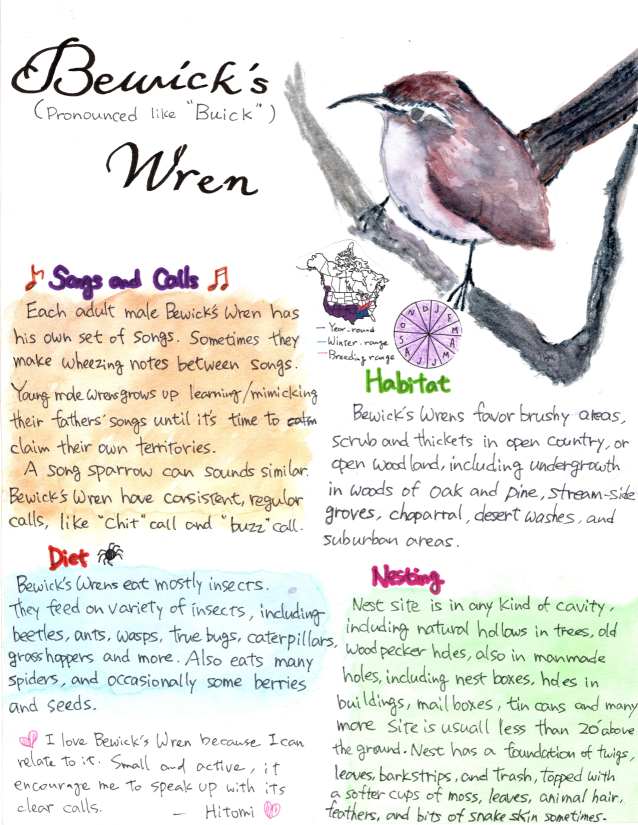 Bewick's
(Pronounced like "Buick")
Wren
Songs and Calls
Each adult male Bewick's Wren has
his own set of songs. Sometimes they
make wheezing notes between songs.
Young male wrens grows up learning/mimicking
their fathers' songs until it's time to
claim their own territories.
A song sparrow can sounds similar.
Bewick's Wren have consistent, regular
calls, like "Chit" call and "buzz" call.
Diet
Bewick's Wrens eat mostly insects.
They feed on variety of insects, including
beetles, ants, wasps, true bugs, caterpillars,
grasshoppers and more. Also eats many
spiders, and occasionally some berries
and seeds.
I love Bewick's Wren because I can
relate to it. Small and active, it
encourage me to speak up with its
clear calls.
— Hitomi
— Year-round
— Winter-range
— Breeding range
J F M A M J J A S O N D
Habitat
Bewick's Wrens favor brushy areas,
scrub and thickets in open country, or
open woodland, including undergrowth
in woods of oak and pine, stream-side
groves, chaparral, desert washes, and
suburban areas.
Nesting
Nest site is in any kind of cavity,
including natural hollows in trees, old
woodpecker holes, also in manmade
holes, including nest boxes, holes in
buildings, mail boxes, tin cans and many
more. Site is usuall less than 20' above
the ground. Nest has a foundation of twigs,
leaves, barkstrips, and trash, topped with
a softer cups of moss, leaves, animal hair,
feathers, and bits of snake skin sometimes.